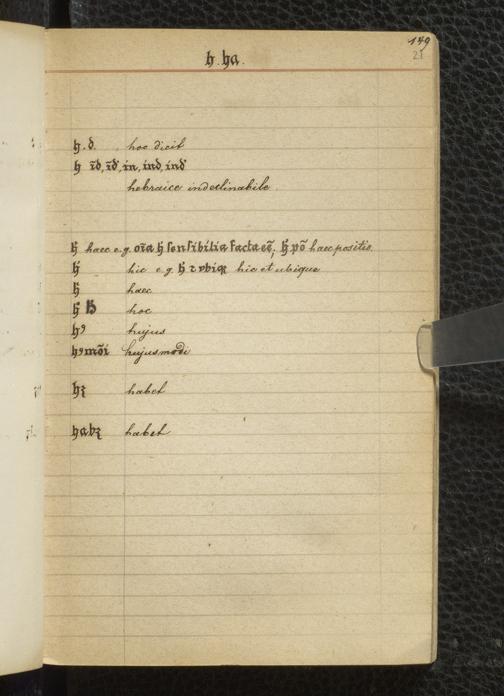 149
21
h. ha.
h. d. hoc dicit
h īd, īd', in, ind, ind'
hebraice indeclinabile
h haec e.g. oīa h sensibilia facta eē; h põ haec positis
h hic e.g. h ⁊ ubiqꝫ hic et ubique
h haec
h h hoc
hꝰ hujus
hꝰmōi hujusmodi
hꝫ habet
habꝫ habet